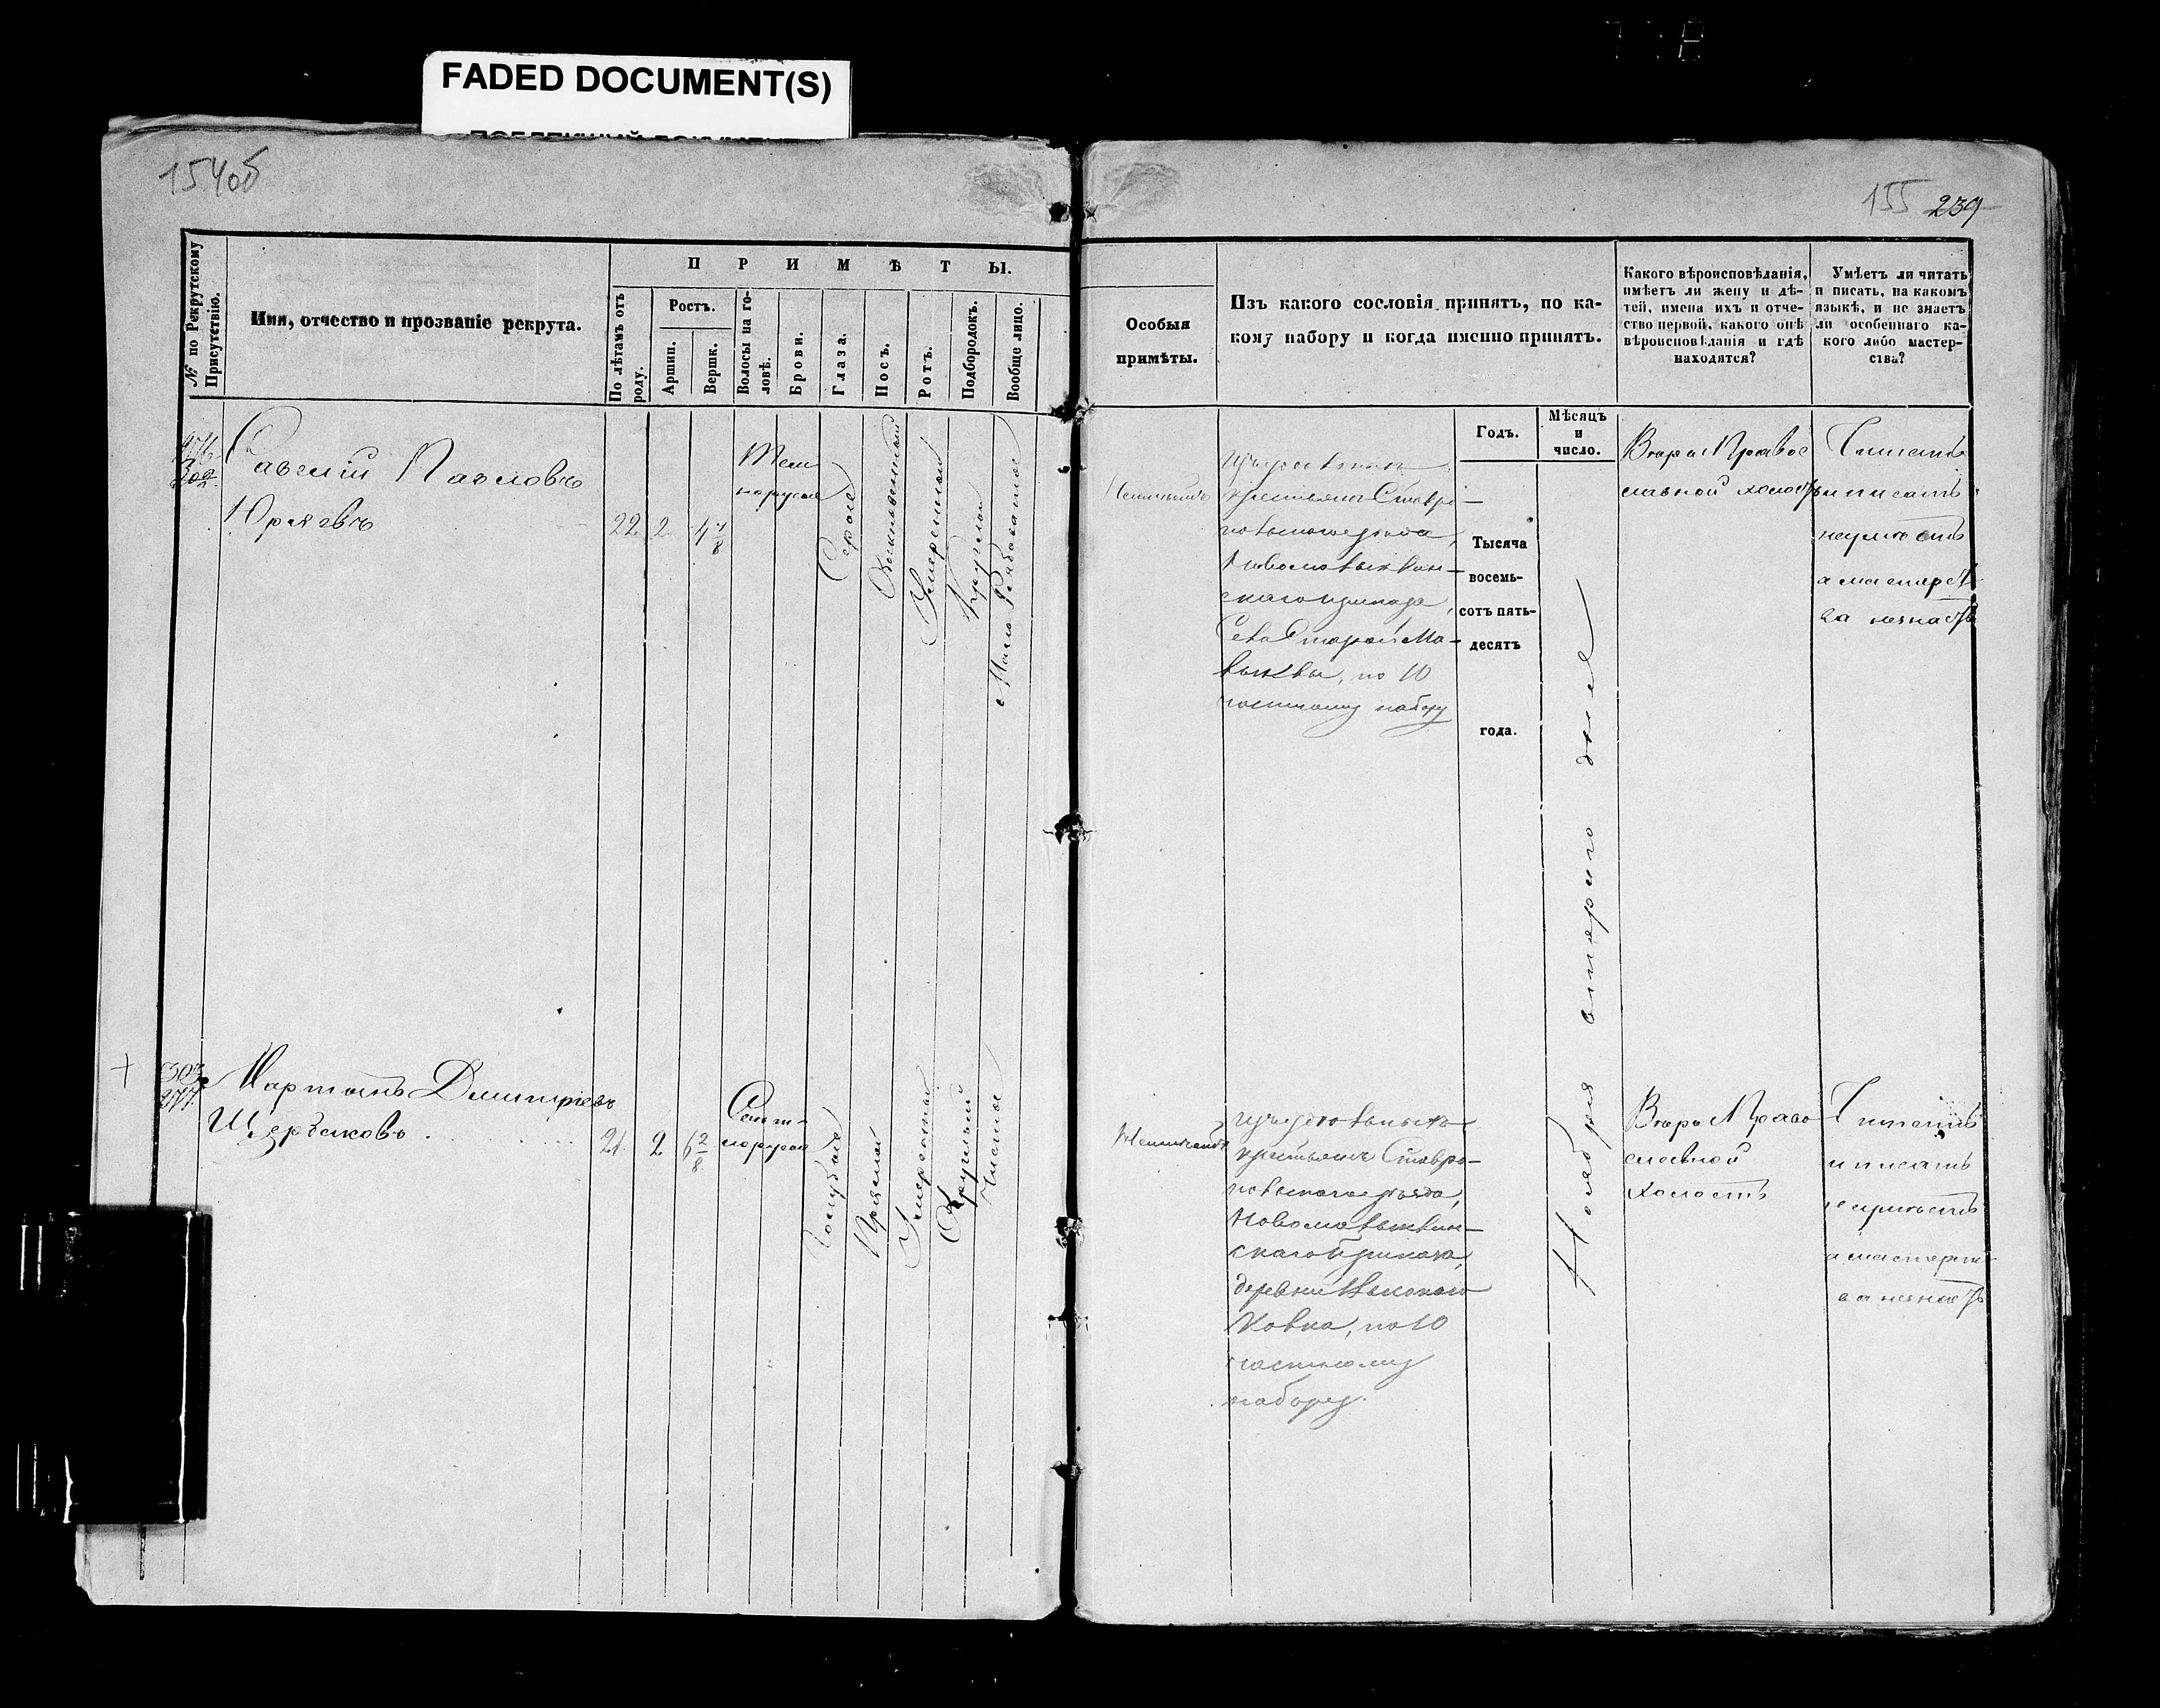 FADED DOCUMENT(S)
154об
155 239
№ по Рекрутскому Присутствію.
Имя, отчество и прозваніе рекрута.
ПРИМѢТЫ.
По лѣтамъ отъ роду.
Ростъ.
Аршин.
Вершк.
Волосы на головѣ.
Брови.
Глаза.
Носъ.
Ротъ.
Подбородокъ.
Вообще лицо.
Особыя
примѣты.
Изъ какого сословія принятъ, по ка-
кому набору и когда именно принятъ.
Какого вѣроисповѣданія,
имѣетъ ли жену и дѣ-
тей, имена ихъ и отче-
ство первой, какого онѣ
вѣроисповѣданія и гдѣ
находятся?
Умѣетъ ли читать
и писать, на какомъ
языкѣ, и не знаетъ
ли особеннаго ка-
кого либо мастер-
ства?
Годъ.
Мѣсяцъ
и
число.
302
Савелій Павловъ
Юряевъ
22 2 4 1/8
Темно
норусые
Серые
Умеренной
Круглой
изъ удѣльныхъ
крестьянъ Ставро-
польскаго уезда,
скаго приказа,
Села Старой Ма-
по 10
частному набору
Тысяча
восемь-
сотъ пять-
десятъ
года.
Ноября втораго дня
Веры Правос
славной холостъ
Читать
и писать
неумеетъ
а мастерст
ва незнаетъ
303
277
Мартынъ Дмитріевъ
Щербаковъ
21 2 6 2/8
Светло
русые
Голубые
Прямой
Умеренный
Круглый
Чистое
изъ удѣльныхъ
крестьянъ Ставро-
польскаго уезда,
скаго приказа,
деревни
по 10
частному
набору.
Веры Право
славной
холостъ
Читать
и писать
неумеетъ
а мастерст
ва незнаетъ